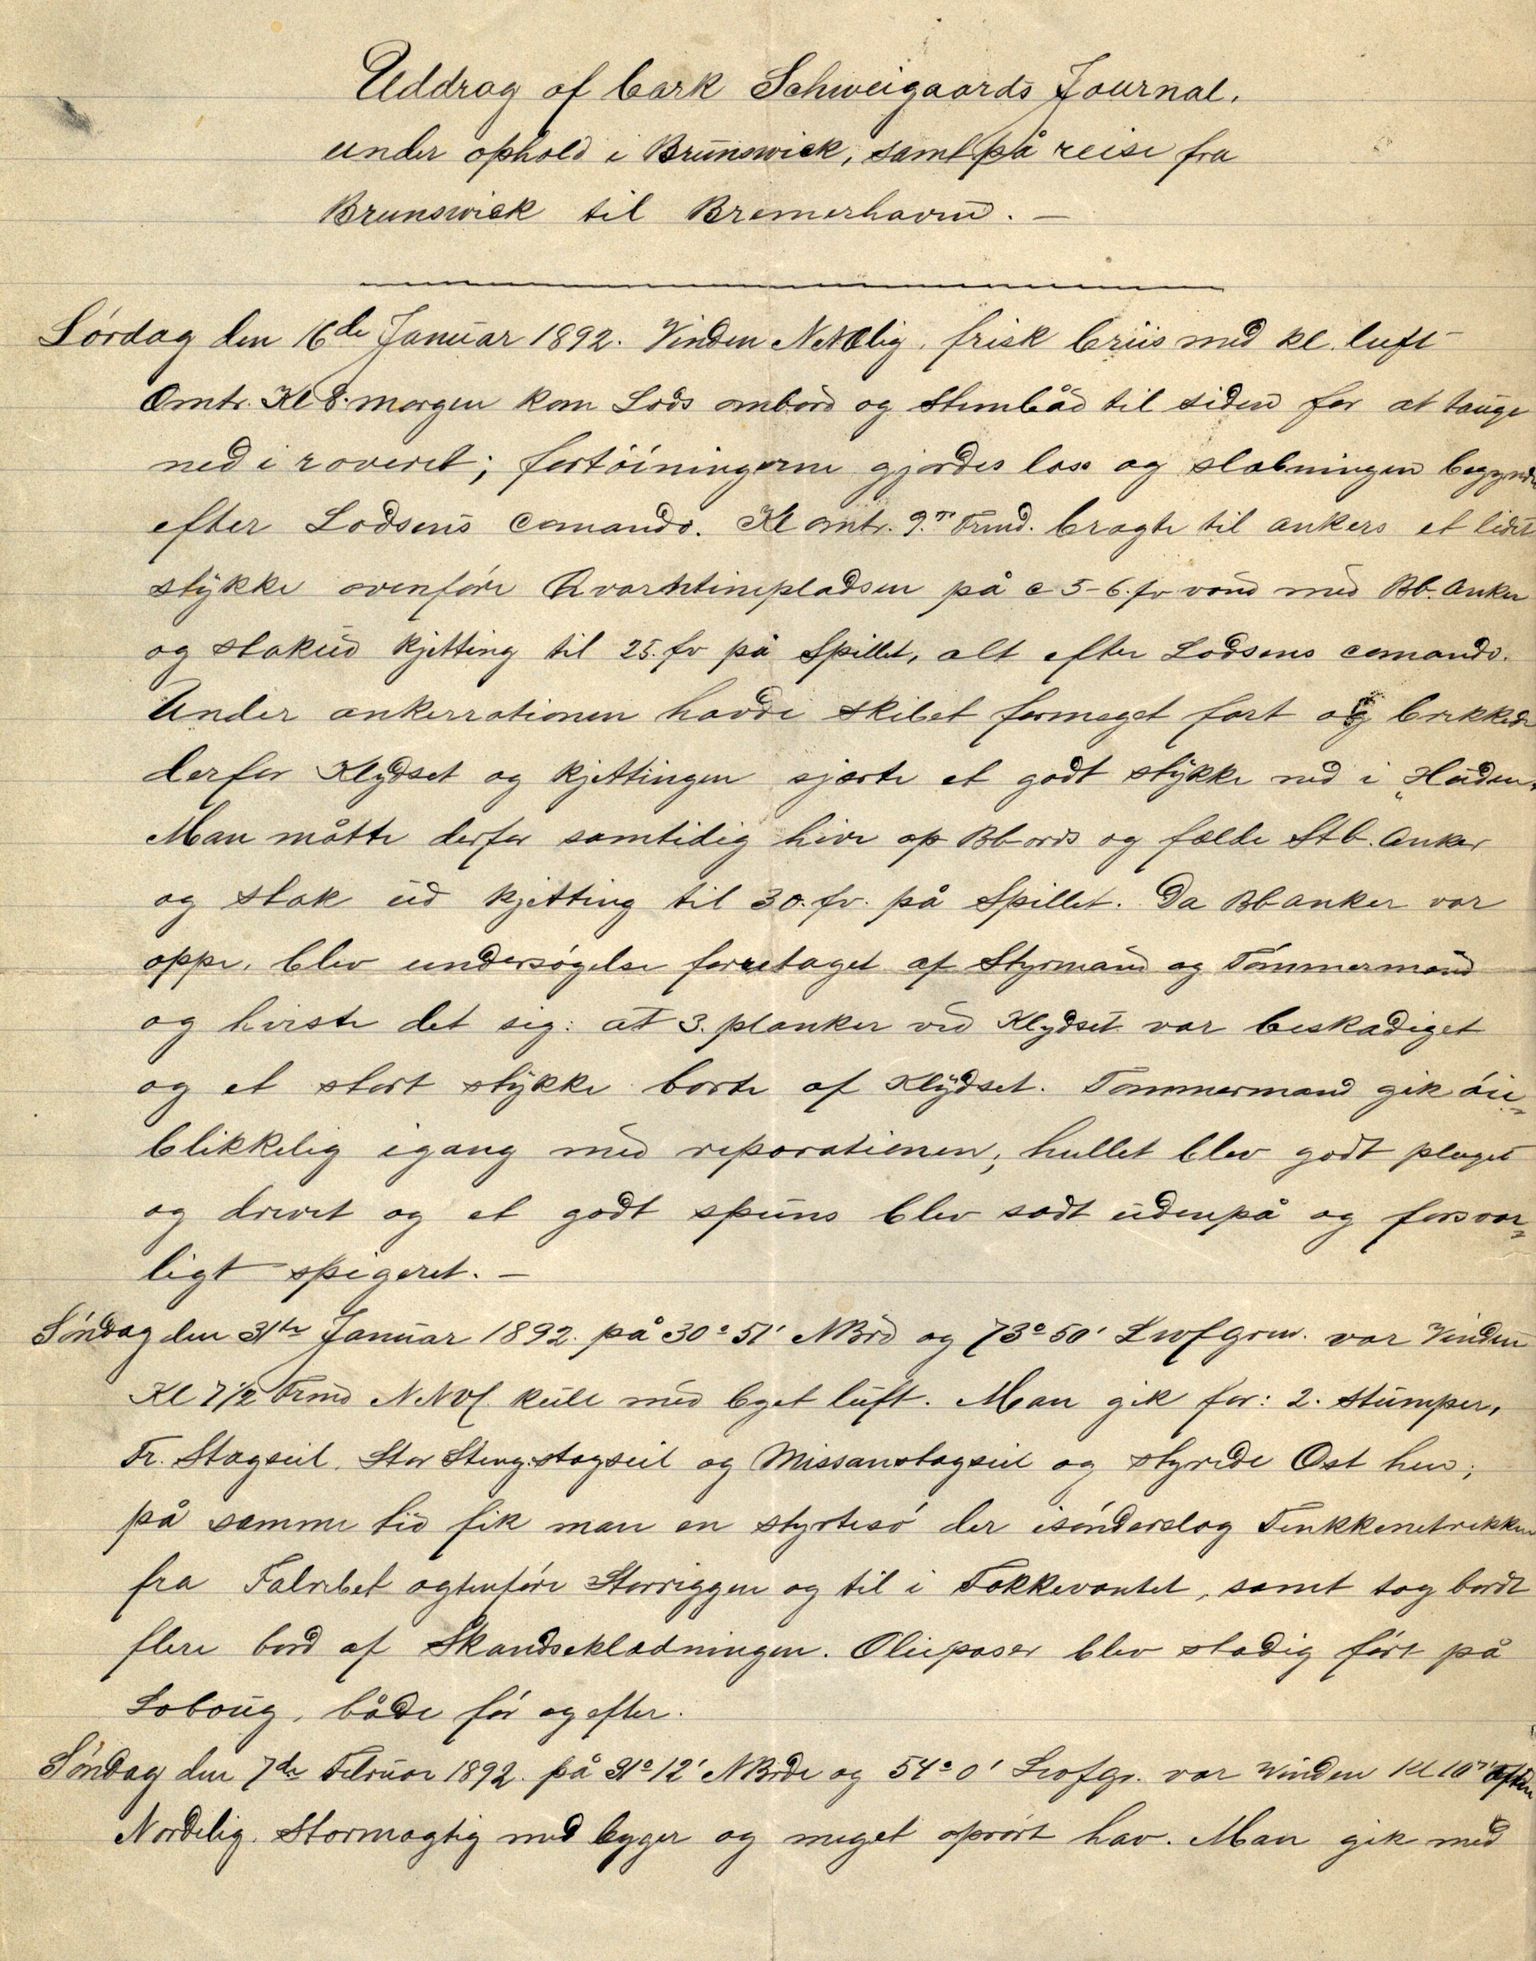 Uddrag af bark Schweigaards Journal.
under ophold i Brunswick, samt på reise fra
Brunswick til Bremerhavend. —
Lørdag den 16de Januar 1892. Vinden NNOlig, frisk briis med kl. luft
Omtr. Kl 8. morgen kom Lods ombord og Stembåd til siden for at tauge
ned i roveret; fortøiningerne gjordes los og slæbningen begyndte
efter Lodsens comando. Kl omtr. 9. Frmd. bragte til ankers et lidet
stykke ovenføre Qvarntinepladsen på c 5-6. fv vand med Bb. Anker
og stakud kjetting til 25. fv på Spillet, alt efter Lodsens comando.
Under ankerrationen havde skibet formeget fart og brækkede
derfor Klydset og kjettingen sjærte et godt stykke ned i „Huden.
Man måtte derfor samtidig hive op Bbords og fælde Stb. Anker
og stak ud kjetting til 30. fv. på Spillet. Da Bb anker var
oppe, blev undersøgelse forretaget af Styrmand og Tømmermand
og hviste det sig: at 3. planker ved Klydset var beskadiget
og et stort stykke borte af Klydset. Tømmermand gik øie-
blikkelig igang med reparationen; hullet blev godt pluget
og drevet og et godt spuns blev sadt udenpå og forsvar-
ligt spigeret. —
Søndag den 31te Januar 1892. på 30° 51' NBrd og 73° 50' Lvofgrw. var Vinden
Kl 7 1/2 Frmd NNV. kule med byet luft. Man gik for: 2. Stumper,
Fr. Stagseil. Stor Steng:stagseil og Missanstagseil og styrede Ost hen;
på samme tid fik man en styrtesø der isønderslog Finkkenetrækken
fra Falrebet agtenføre Storriggen og til i Fokkevantet, samt tog bordt
flere bord af Skandseklædningen. Olieposer blev stadig ført på
Loboug, både før og efter.
Søndag den 7de Februar 1892. på 31° 12' NBrde og 54° 0' Lvofgr. var Vinden Kl 10 Aften
Nordelig. Stormagtig med byger og meget oprørt hav. Man gik med